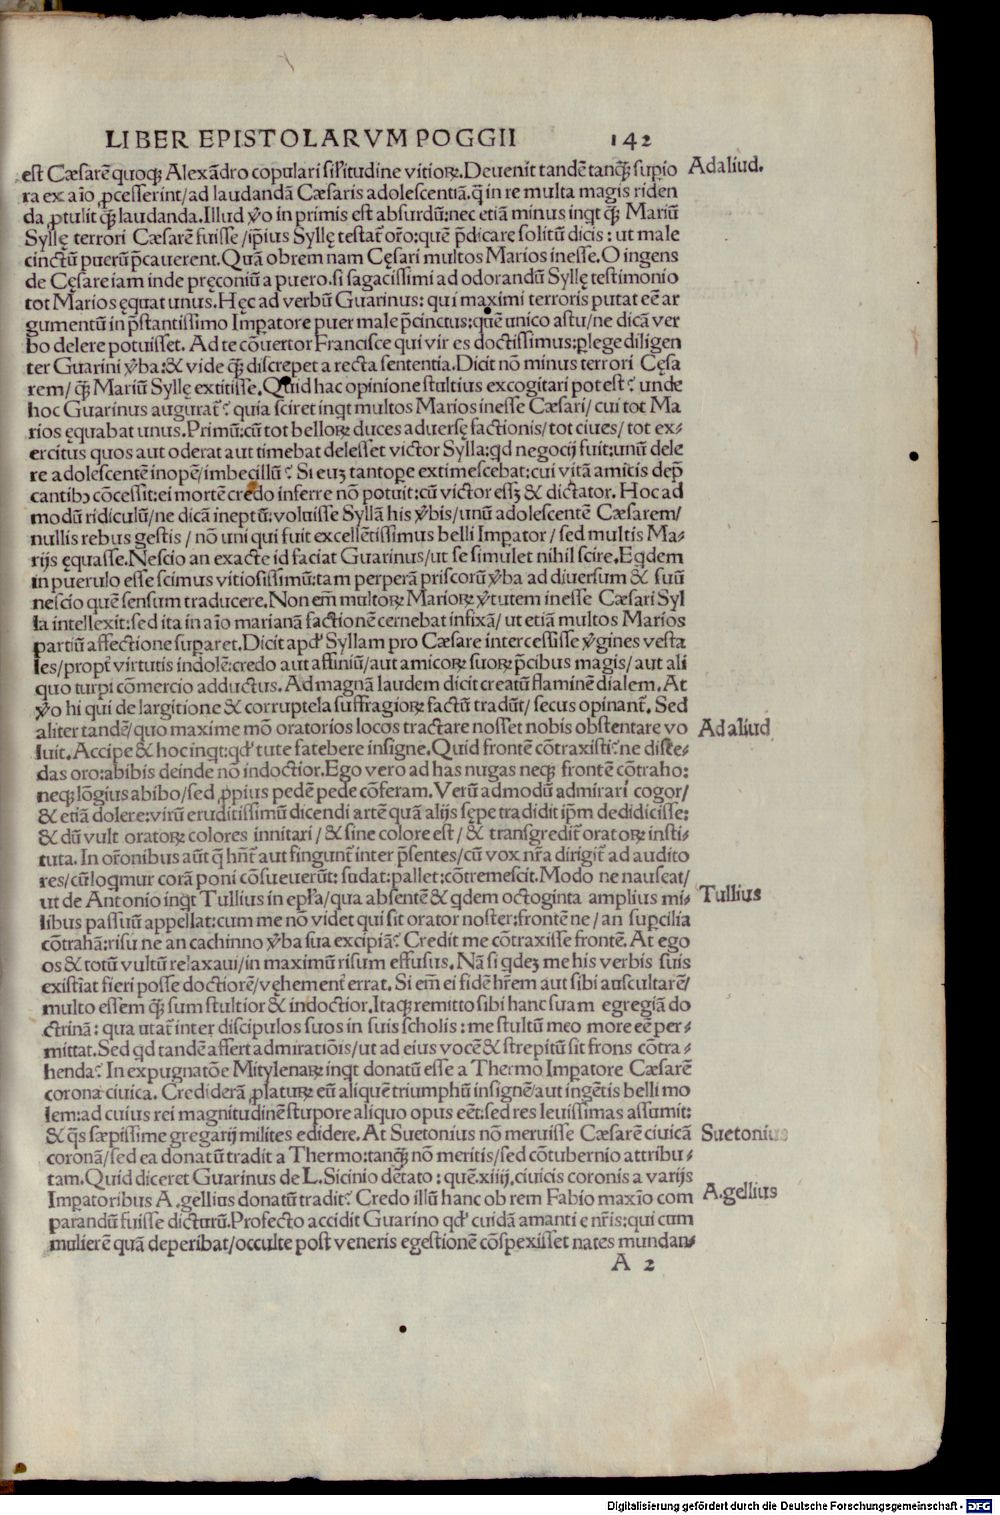 LIBER EPISTOLARVM POGGII 142
est Cæsarē quoqꝫ Alexādro copulari sil'itudine vitioꝝ. Deuenit tandē tanqꝫ̃ supio Ad aliud.
ra ex aīo ꝓcesserint/ad laudandā Cæsaris adolescentiā.q̄ in re multa magis riden
da ꝓtulit qꝫ̃ laudanda. Illud v̓o in primis est absurdū:nec etiā minus inqt qꝫ̃ Mariū
Syllę terrori Cæsarē fuisse/ip̄ius Syllę testat̄ or̄o:quē p̄dicare solitū dicis: ut male
cinctū puerū p̄cauerent. Quā obrem nam Cęsari multos Marios inesse. O ingens
de Cęsare iam inde pręconiū a puero. si sagacissimi ad odorandū Syllę testimonio
tot Marios ęquat unus. Hęc ad verbū Guarinus: qui maximi terroris putat eē ar
gumentū in p̄stantissimo Imꝑatore puer male p̄cinctus:quē unico astu/ne dicā ver
bo delere potuisset. Ad te cōuertor Francisce qui vir es doctissimus:ꝑlege diligen
ter Guarini v̓ba:& vide qꝫ̃ discrepet a recta sententia. Dicit nō minus terrori Cęsa
rem/ qꝫ̃ Mariū Syllę extitisse. Quid hac opinione stultius excogitari potest? unde
hoc Guarinus augurat̄? quia sciret inqt multos Marios inesse Cæsari/ cui tot Ma
rios ęquabat unus. Primū:cū tot belloꝝ duces aduersę factionis/tot ciues/ tot ex-
ercitus quos aut oderat aut timebat delesset victor Sylla:qd negocij fuit:unū dele
re adolescentē inopē/imbecillū? Si euꝫ tantoꝑe extimescebat:cui vitā amicis dep̄
cantibꝰ cōcessit:ei mortē credo inferre nō potuit:cū victor essꝫ & dictator. Hoc ad
modū ridiculū/ne dicā ineptū:voluisse Syllā his v̓bis/unū adolescentē Cæsarem/
nullis rebus gestis / nō uni qui fuit excellētissimus belli Imꝑator / sed multis Ma-
rijs ęquasse. Nescio an exacte id faciat Guarinus/ut se simulet nihil scire. Eqdem
in puerulo esse scimus vitiosissimū:tam perperā priscorū v̓ba ad diuersum & suū
nescio quē sensum traducere. Non em̄ multoꝝ Marioꝝ v̓tutem inesse Cæsari Syl
la intellexit:sed ita in aīo marianā factionē cernebat infixā/ ut etiā multos Marios
partiū affectione suꝑaret. Dicit apd' Syllam pro Cæsare intercessisse v̓gines vesta
les/propt̄ virtutis indolē:credo aut affiniū/aut amicoꝝ suoꝝ p̄cibus magis/aut ali
quo turpi cōmercio adductus. Ad magnā laudem dicit creatū flaminē dialem. At
v̓o hi qui de largitione & corruptela suffragioꝝ factū tradūt/ secus opinant̄. Sed
aliter tandē/quo maxime mō oratorios locos tractare nosset nobis obstentare vo Ad aliud
luit. Accipe & hoc inqt:qd' tute fatebere insigne. Quid frontē cōtraxisti? ne diste-
das oro:abibis deinde nō indoctior. Ego vero ad has nugas neqꝫ frontē cōtraho:
neqꝫ lōgius abibo/sed ꝓpius pedē pede cōferam. Verū admodū admirari cogor/
& etiā dolere:virū eruditissimū dicendi artē quā alijs sępe tradidit ip̄m dedidicisse:
& dū vult oratoꝝ colores innitari/ & sine colore est/ & transgredit̄ oratoꝝ insti-
tuta. In or̄onibus aūt q̄ hn̄t aut fingunt̄ inter p̄sentes/cū vox nr̄a dirigit̄ ad audito
res/cū loqmur corā poni cōsueuerūt: sudat:pallet:cōtremescit. Modo ne nauseat/
ut de Antonio inqt Tullius in epl'a/qua absentē & qdem octoginta amplius mi- Tullius
libus passuū appellat:cum me nō videt qui sit orator noster:frontē ne/an suꝑcilia
cōtrahā:risu ne an cachinno v̓ba sua excipiā? Credit me cōtraxisse frontē. At ego
os & totū vultū relaxaui/in maximū risum effusus. Nā si qdeꝫ me his verbis suis
existiat fieri posse doctiorē/vęhement̄ errat. Si em̄ ei fidē hr̄em aut sibi auscultarē/
multo essem qꝫ̃ sum stultior & indoctior. Itaqꝫ remitto sibi hanc suam egregiā do
ctrinā: qua utat̄ inter discipulos suos in suis scholis: me stultū meo more eē per-
mittat. Sed qd tandē affert admiratiōis/ut ad eius vocē & strepitū sit frons cōtra-
henda? In expugnatōe Mitylenaꝝ inqt donatū esse a Thermo Imꝑatore Cæsarē
corona ciuica. Crediderā ꝓlaturꝝ eū aliquē triumphū insignē/aut ingētis belli mo
lem:ad cuius rei magnitudinē stupore aliquo opus eēt:sed res leuissimas assumit:
& q̄s sæpissime gregarij milites edidere. At Suetonius nō meruisse Cæsarē ciuicā Suetonius
coronā/sed ea donatū tradit a Thermo:tanqꝫ̃ nō meritis/sed cōtubernio attribu-
tam. Quid diceret Guarinus de L. Sicinio dētato: quē.xiiij. ciuicis coronis a varijs
Imꝑatoribus A .gellius donatū tradit? Credo illū hanc ob rem Fabio maxīo com A.gellius
parandū fuisse dicturū. Profecto accidit Guarino qd' cuidā amanti e nr̄is:qui cum
mulierē quā deperibat/occulte post veneris egestionē cōspexisset nates mundan-
A 2
Digitalisierung gefördert durch die Deutsche Forschungsgemeinschaft - DFG